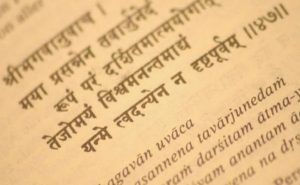 श्रीभगवानुवाच ।
मया प्रसन्नेन तवार्जुनेदं
रूपं परं दर्शितमात्मयोगात् ।
तेजोमयं विश्वमनन्तमाद्यं
यन्मे त्वदन्येन न दृष्टपूर्वम् ॥४७॥
hagavān uvāca
sannena tavārjunedaṁ
raṁ darśitam ātma-y
anantam ā
na dṛṣ